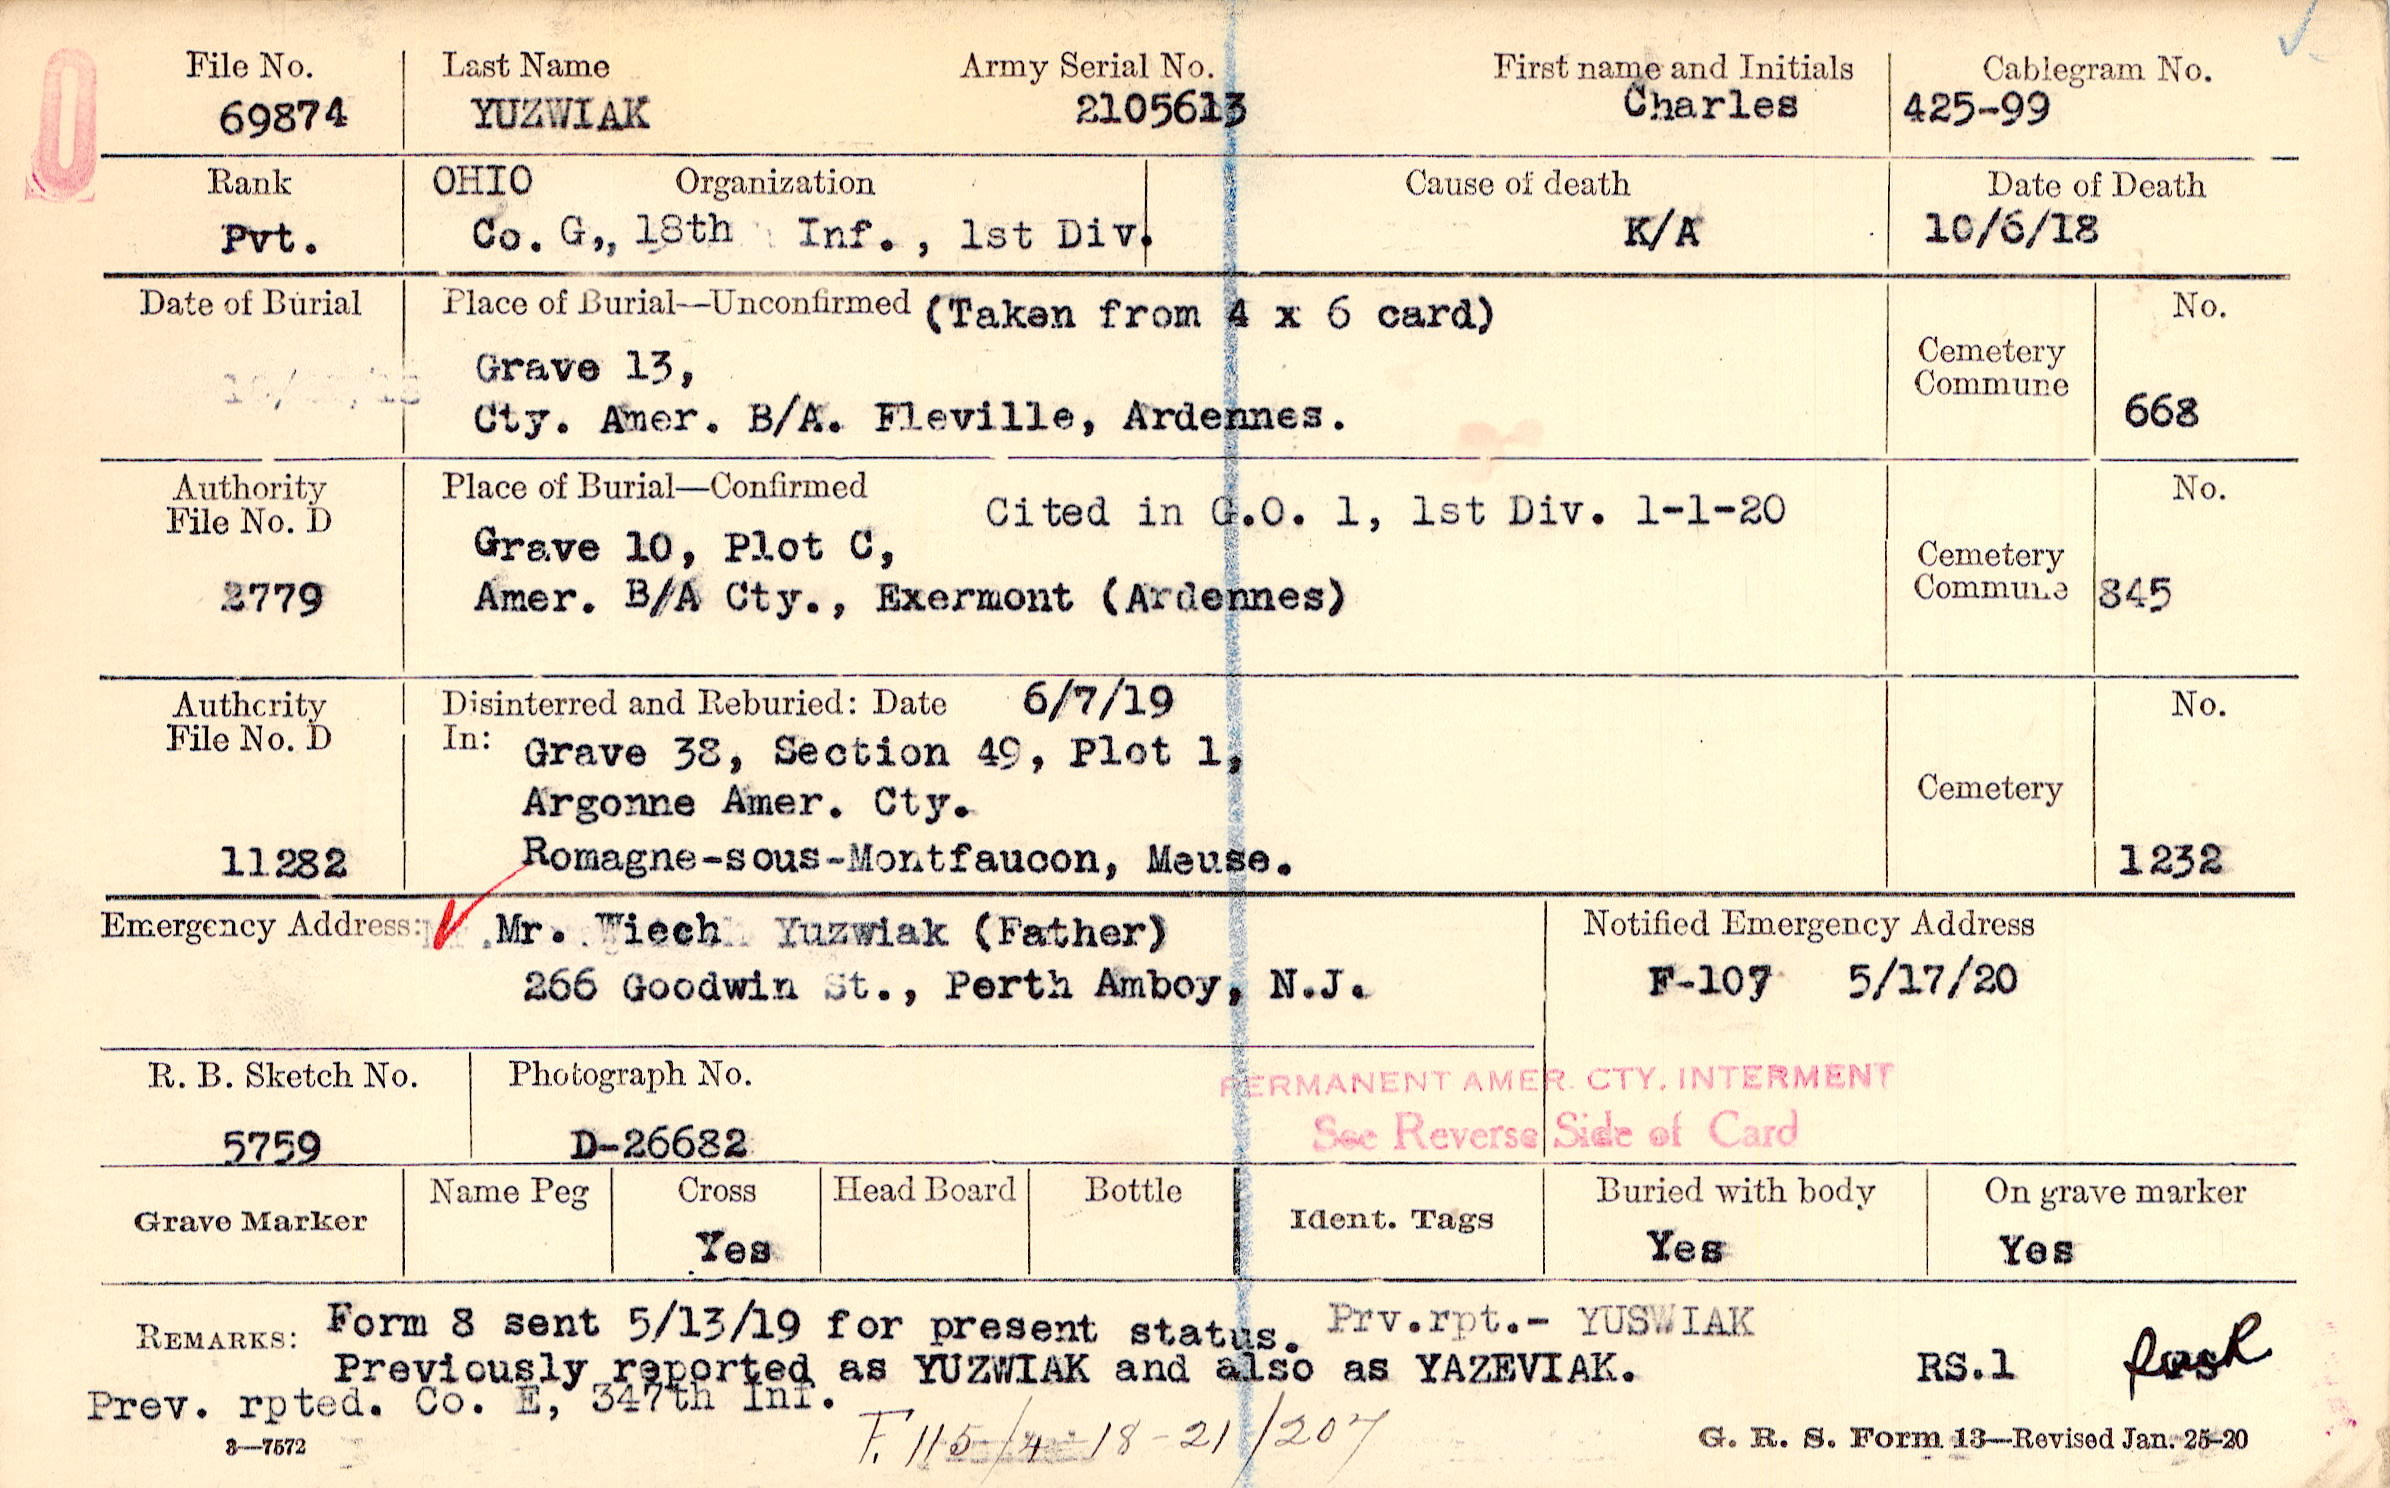 File No. Last Name Army Serial No. First name and Initials Cablegram No.
69874 YUZWIAK 2105613 Charles 425-99
Rank OHIO Organization Cause of death Date of Death
Pvt. Co. G,, 18th Inf., 1st Div. K/A 10/6/18
Date of Burial Place of Burial—Unconfirmed (Taken from 4 x 6 card) No.
Grave 13, Cemetery
Commune
Cty. Amer. B/A. Fleville, Ardennes. 668
Authority Place of Burial—Confirmed No.
File No. D Cited in G.O. 1, 1st Div. 1-1-20
Grave 10, Plot C, Cemetery
2779 Amer. B/A Cty., Exermont (Ardennes) Commune 845
Authority Disinterred and Reburied: Date 6/7/19 No.
File No. D In: Grave 38, Section 49, Plot 1,
Argonne Amer. Cty. Cemetery
11282 Romagne-sous-Montfaucon, Meuse. 1232
Emergency Address: Mr. Wiech Yuzwiak (Father) Notified Emergency Address
266 Goodwin St., Perth Amboy, N.J. F-107 5/17/20
R. B. Sketch No. Photograph No. PERMANENT AMER. CTY. INTERMENT
5759 D-26682 See Reverse Side of Card
Name Peg Cross Head Board Bottle Buried with body On grave marker
Grave Marker Ident. Tags
Yes Yes Yes
REMARKS: Form 8 sent 5/13/19 for present status. Prv.rpt.- YUSWIAK
Previously reported as YUZWIAK and also as YAZEVIAK. RS.1
Prev. rpted. Co. E, 347th Inf.
3—7572 F. 115/4-18-21/207 G. R. S. Form 13—Revised Jan. 25-20